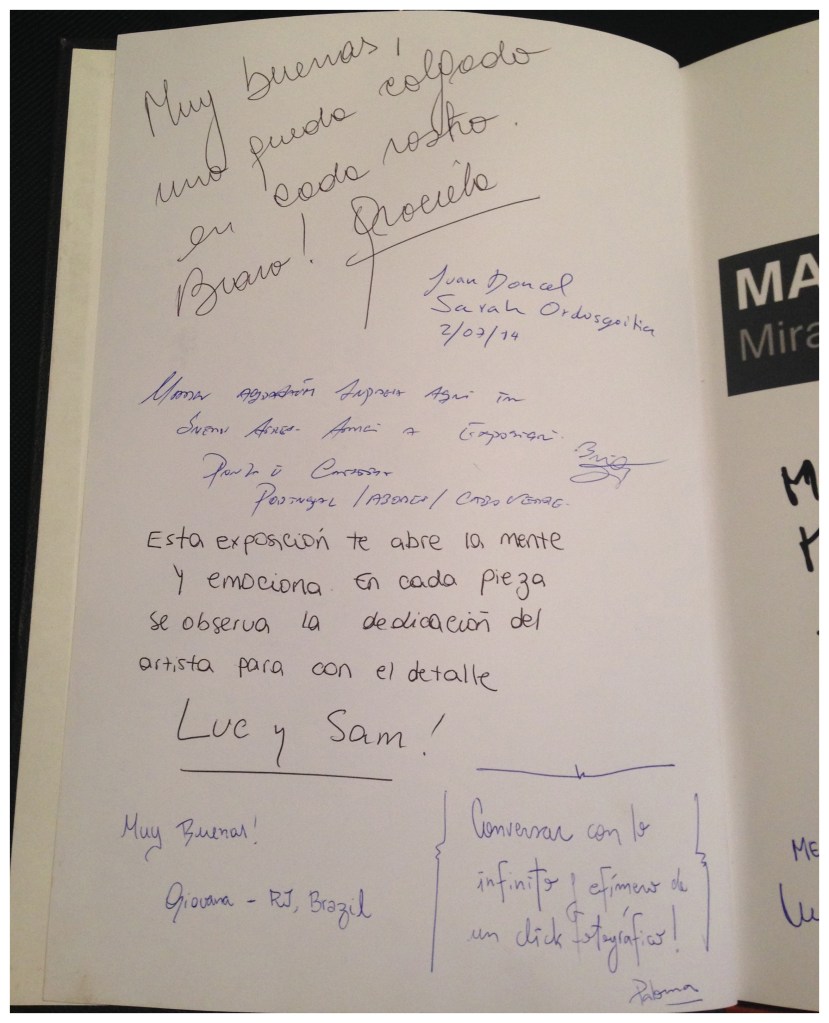 Muy buenas,
uno queda colgado
en cada rostro.
Bravo! Graciela
Juan Doncel
Sarah Ordosgoitia
2/07/14
Aqui
a
Portugal / / Cabo Verde.
Esta exposición te abre la mente
y emociona. En cada pieza
se observa la dedicación del
artista para con el detalle
Luc y Sam!
Muy Buenas!
Giovana - RJ, Brazil
Conversar con lo
infinito y efímero de
un click fotográfico!
Paloma
MA
Mira
ME